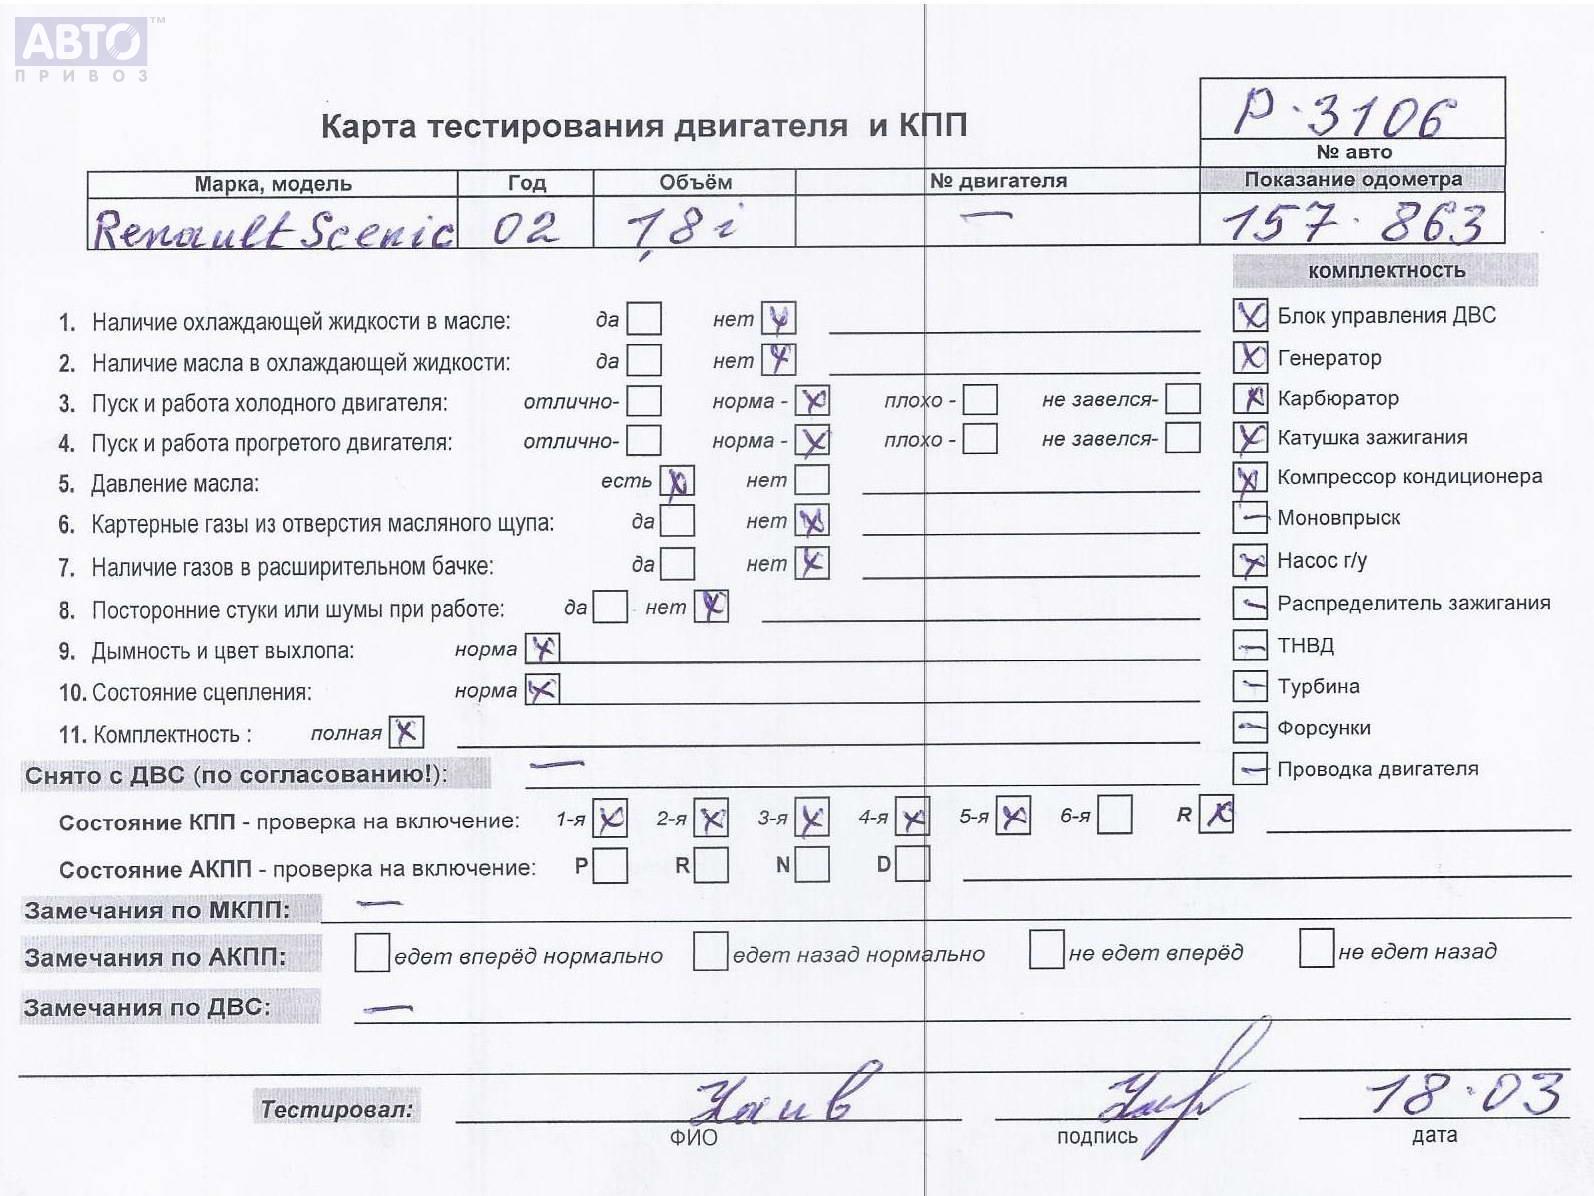 АВТО™
ПРИВОЗ
Р-3106
Карта тестирования двигателя и КПП
№ авто
Марка, модель Год Объём № двигателя Показание одометра
Renault Scenic 02 1,8 i — 157.863
комплектность
1. Наличие охлаждающей жидкости в масле: да нет x
x Блок управления ДВС
2. Наличие масла в охлаждающей жидкости: да нет x
x Генератор
3. Пуск и работа холодного двигателя: отлично- норма - x плохо - не завелся-
x Карбюратор
4. Пуск и работа прогретого двигателя: отлично- норма - x плохо - не завелся-
x Катушка зажигания
5. Давление масла: есть x нет
x Компрессор кондиционера
6. Картерные газы из отверстия масляного щупа: да нет x
— Моновпрыск
7. Наличие газов в расширительном бачке: да нет x
x Насос г/у
8. Посторонние стуки или шумы при работе: да нет x
— Распределитель зажигания
9. Дымность и цвет выхлопа: норма x
— ТНВД
10. Состояние сцепления: норма x
— Турбина
11. Комплектность : полная x
— Форсунки
Снято с ДВС (по согласованию!): —
— Проводка двигателя
Состояние КПП - проверка на включение: 1-я x 2-я x 3-я x 4-я x 5-я x 6-я R x
Состояние АКПП - проверка на включение: P R N D
Замечания по МКПП: —
Замечания по АКПП: едет вперёд нормально едет назад нормально не едет вперёд не едет назад
Замечания по ДВС: —
Тестировал: 18.03
ФИО подпись дата